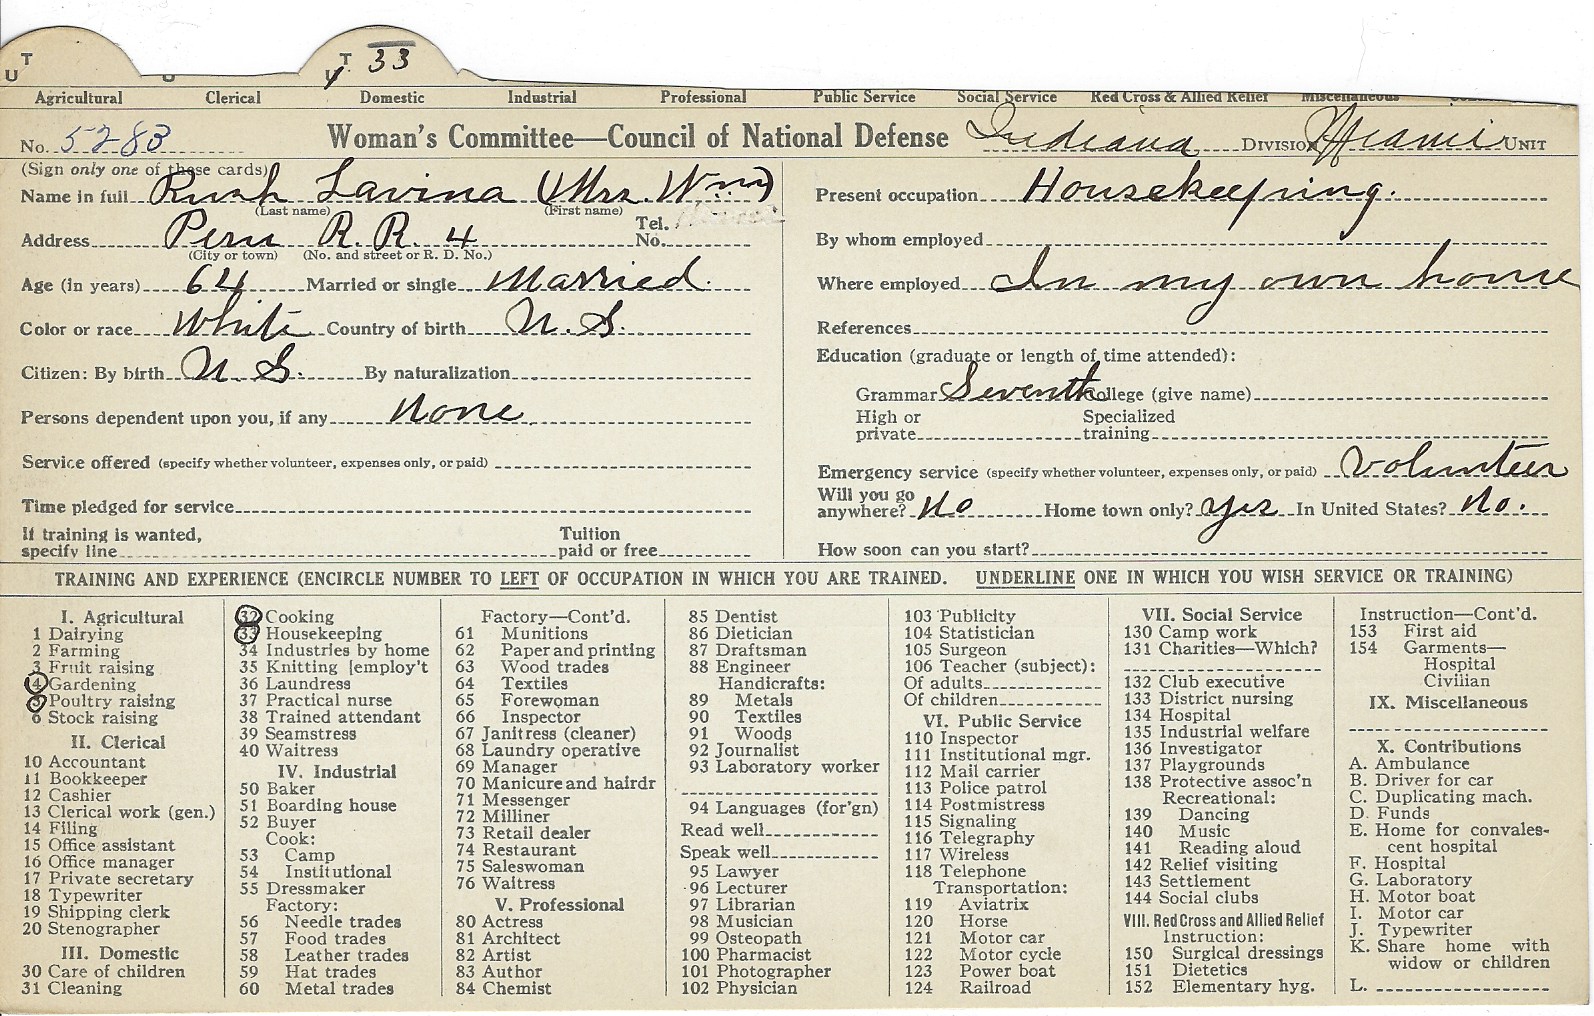 T
U
T 33
U
Agricultural Clerical Domestic Industrial Professional Public Service Social Service Red Cross & Allied Relief Miscellaneous
No. 5283 Woman's Committee—Council of National Defense Indiana Division Miami Unit
(Sign only one of these cards)
Name in full Rush Lavina (Mrs. Wm)
(Last name) (First name)
Address Peru R. R. 4 Tel. No.
(City or town) (No. and street or R. D. No.)
Age (in years) 64 Married or single Married.
Color or race White Country of birth U.S.
Citizen: By birth U.S. By naturalization
Persons dependent upon you, if any None
Service offered (specify whether volunteer, expenses only, or paid)
Time pledged for service
If training is wanted, specify line Tuition paid or free
Present occupation Housekeeping.
By whom employed
Where employed In my own home
References
Education (graduate or length of time attended):
Grammar Seventh College (give name)
High or private Specialized training
Emergency service (specify whether volunteer, expenses only, or paid) Volunteer
Will you go anywhere? No Home town only? Yes In United States? No.
How soon can you start?
TRAINING AND EXPERIENCE (ENCIRCLE NUMBER TO LEFT OF OCCUPATION IN WHICH YOU ARE TRAINED. UNDERLINE ONE IN WHICH YOU WISH SERVICE OR TRAINING)
I. Agricultural
1 Dairying
2 Farming
3 Fruit raising
4 Gardening
5 Poultry raising
6 Stock raising
II. Clerical
10 Accountant
11 Bookkeeper
12 Cashier
13 Clerical work (gen.)
14 Filing
15 Office assistant
16 Office manager
17 Private secretary
18 Typewriter
19 Shipping clerk
20 Stenographer
III. Domestic
30 Care of children
31 Cleaning
32 Cooking
33 Housekeeping
34 Industries by home
35 Knitting [employ't
36 Laundress
37 Practical nurse
38 Trained attendant
39 Seamstress
40 Waitress
IV. Industrial
50 Baker
51 Boarding house
52 Buyer
Cook:
53 Camp
54 Institutional
55 Dressmaker
Factory:
56 Needle trades
57 Food trades
58 Leather trades
59 Hat trades
60 Metal trades
Factory—Cont'd.
61 Munitions
62 Paper and printing
63 Wood trades
64 Textiles
65 Forewoman
66 Inspector
67 Janitress (cleaner)
68 Laundry operative
69 Manager
70 Manicure and hairdr
71 Messenger
72 Milliner
73 Retail dealer
74 Restaurant
75 Saleswoman
76 Waitress
V. Professional
80 Actress
81 Architect
82 Artist
83 Author
84 Chemist
85 Dentist
86 Dietician
87 Draftsman
88 Engineer
Handicrafts:
89 Metals
90 Textiles
91 Woods
92 Journalist
93 Laboratory worker
94 Languages (for'gn)
Read well
Speak well
95 Lawyer
96 Lecturer
97 Librarian
98 Musician
99 Osteopath
100 Pharmacist
101 Photographer
102 Physician
103 Publicity
104 Statistician
105 Surgeon
106 Teacher (subject):
Of adults
Of children
VI. Public Service
110 Inspector
111 Institutional mgr.
112 Mail carrier
113 Police patrol
114 Postmistress
115 Signaling
116 Telegraphy
117 Wireless
118 Telephone
Transportation:
119 Aviatrix
120 Horse
121 Motor car
122 Motor cycle
123 Power boat
124 Railroad
VII. Social Service
130 Camp work
131 Charities—Which?
132 Club executive
133 District nursing
134 Hospital
135 Industrial welfare
136 Investigator
137 Playgrounds
138 Protective assoc'n
Recreational:
139 Dancing
140 Music
141 Reading aloud
142 Relief visiting
143 Settlement
144 Social clubs
VIII. Red Cross and Allied Relief
Instruction:
150 Surgical dressings
151 Dietetics
152 Elementary hyg.
Instruction—Cont'd.
153 First aid
154 Garments—
Hospital
Civilian
IX. Miscellaneous
X. Contributions
A. Ambulance
B. Driver for car
C. Duplicating mach.
D. Funds
E. Home for convales-
cent hospital
F. Hospital
G. Laboratory
H. Motor boat
I. Motor car
J. Typewriter
K. Share home with
widow or children
L.